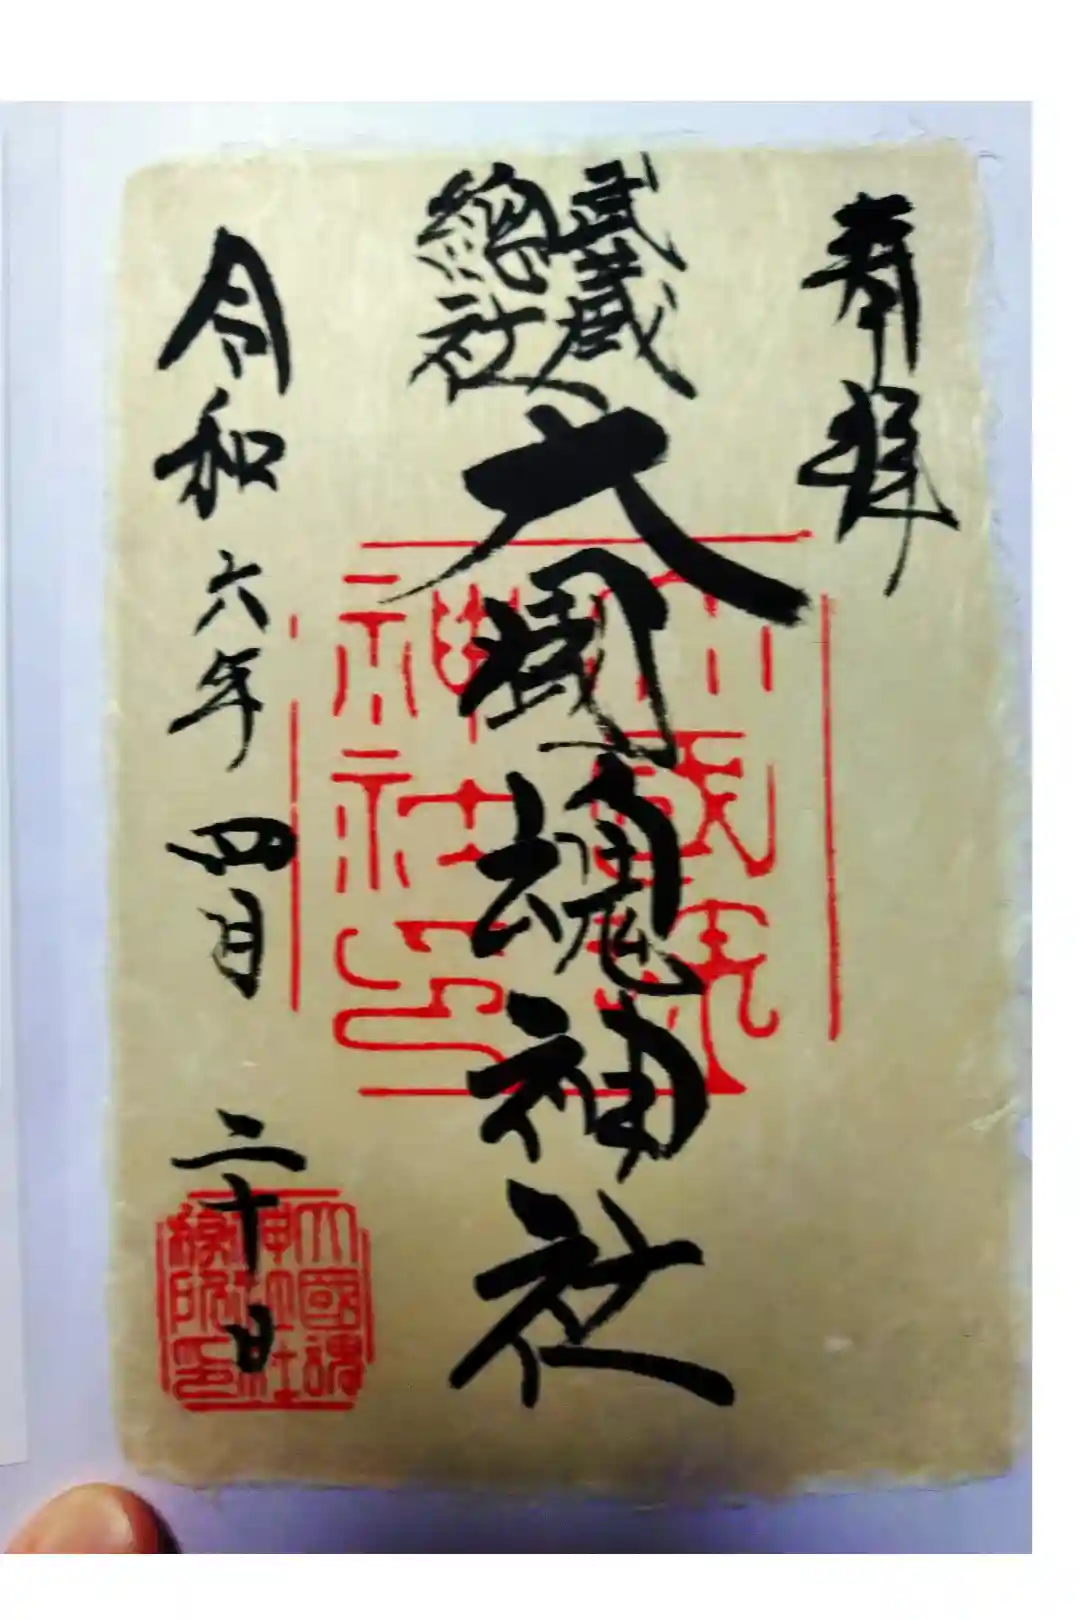 奉拝
武蔵
總社
大國魂神社
令和六年四月二十日
大國魂
神社印
大國魂
神社